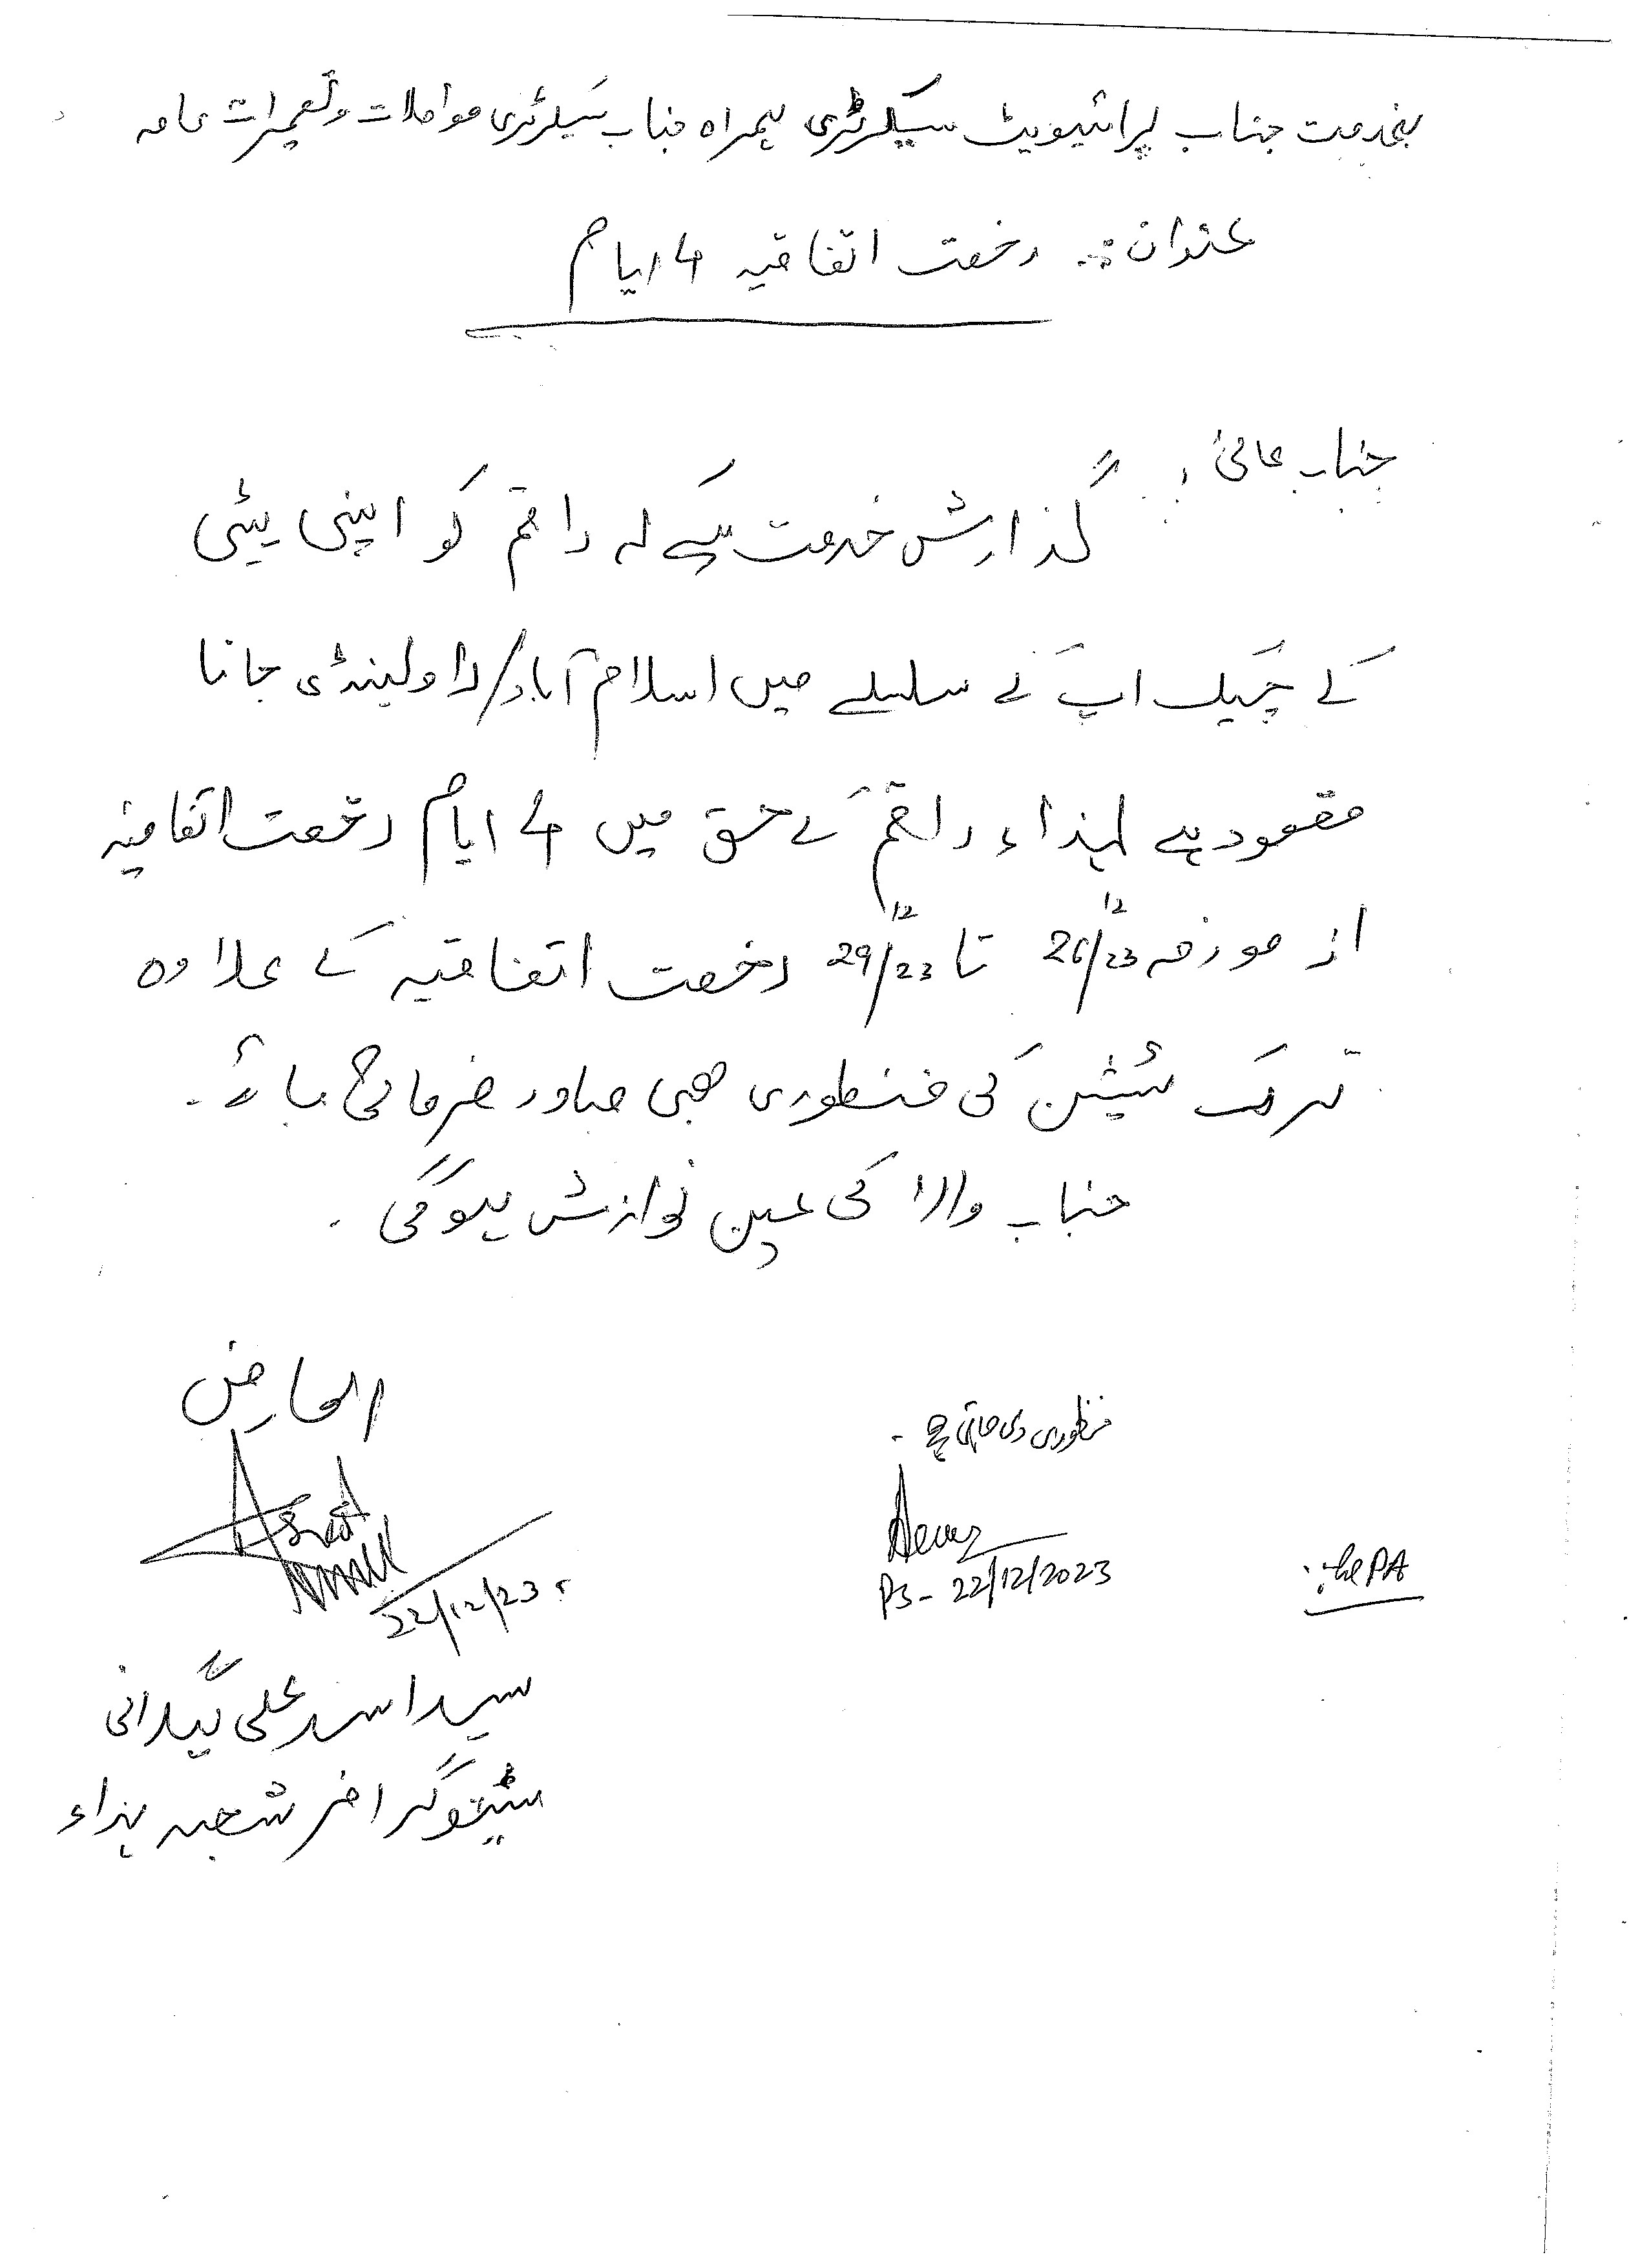 بخدمت جناب پرائیویٹ سیکرٹری ہمراہ جناب سیکرٹری مواصلات و تعمیرات عامہ
عنوان:۔ رخصت اتفاقیہ 4 ایام
جناب عالیٰ!
گذارش خدمت ہے کہ راقم کو اپنی بیٹی
کے چیک اپ کے سلسلے میں اسلام آباد/راولپنڈی جانا
مقصود ہے لہذاء راقم کے حق میں 4 ایام رخصت اتفاقیہ
از مورخہ 26/12/23 تا 29/12/23 رخصت اتفاقیہ کے علاوہ
ترک سٹیشن کی منظوری بھی صادر فرمائی جائے۔
جناب والا کی عین نوازش ہوگی۔
العارض
منظوری دی جاتی ہے۔
22/12/23
PS- 22/12/2023
PA
سید اسد علی گیلانی
سٹینوگرافر شعبہ ہذاء